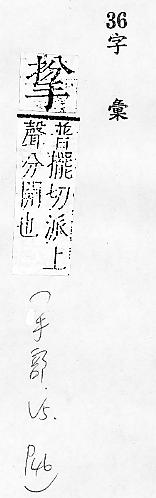 36字彙
普擺切派上
聲分開也
(手部.V5.P46)